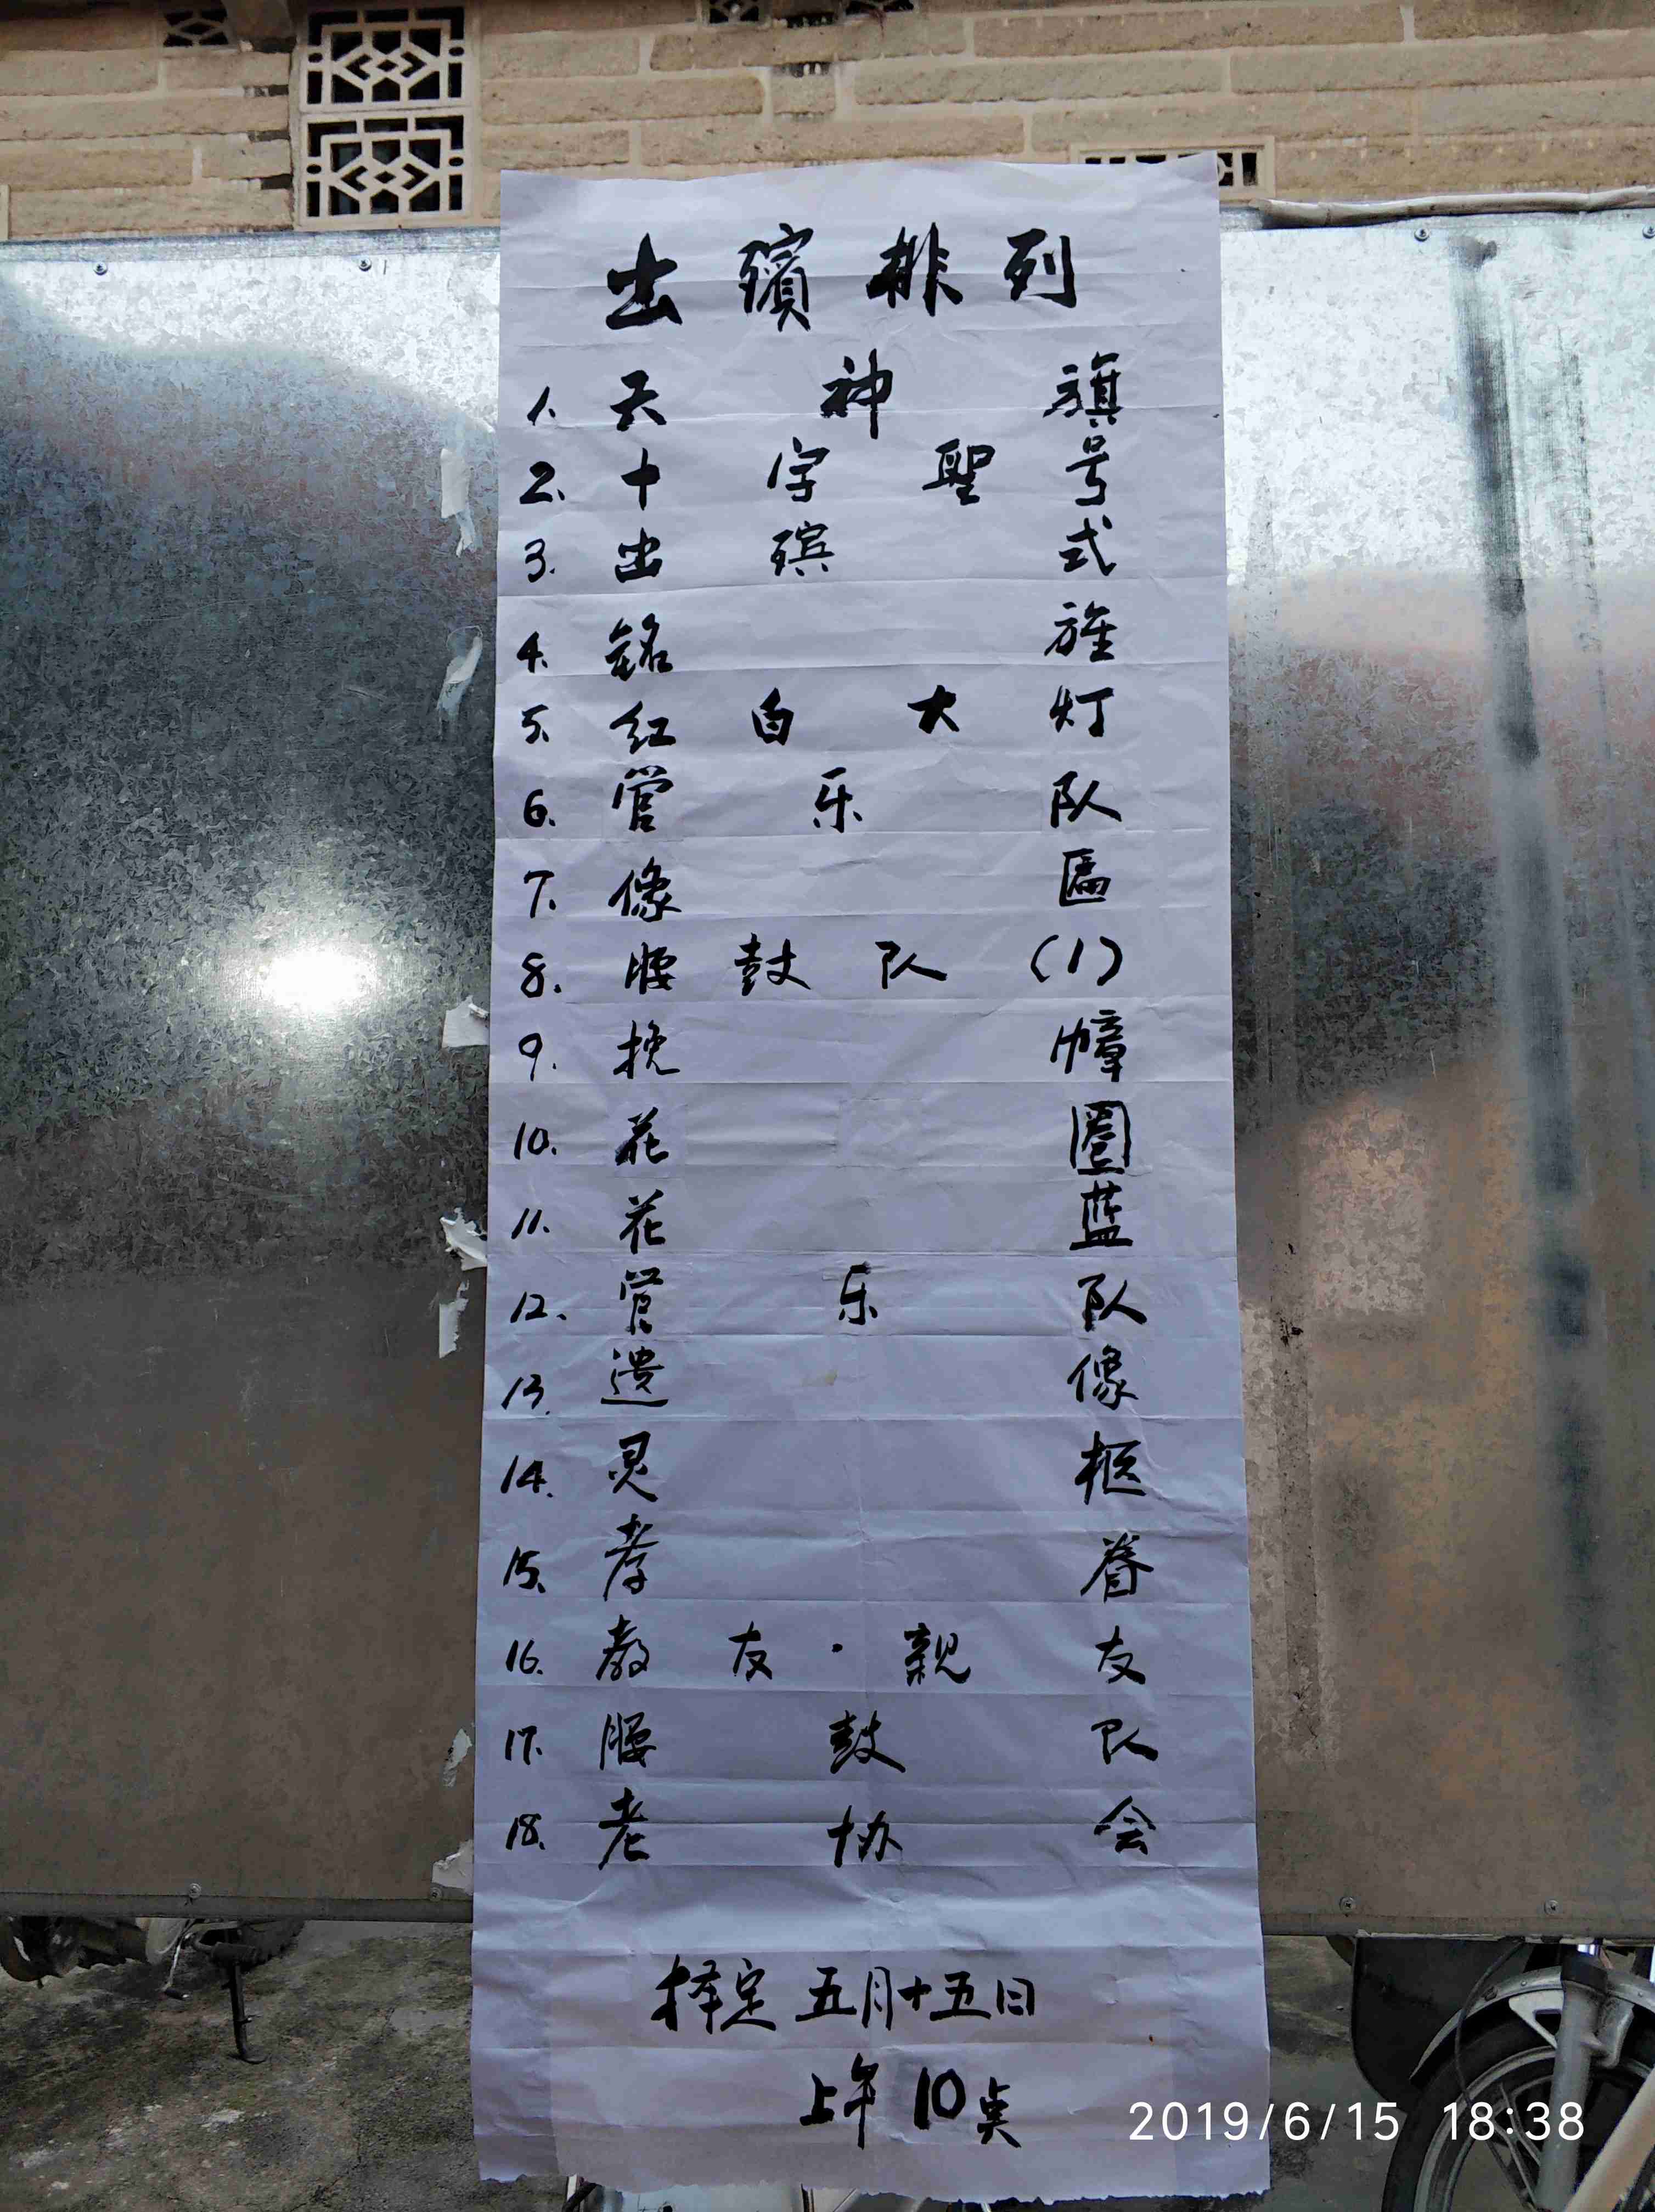 出殯排列
1. 天神旗
2. 十字聖号
3. 出殡式
4. 銘旌
5. 红白大灯
6. 管乐队
7. 像匾
8. 腰鼓队(1)
9. 挽幛
10. 花圈
11. 花蓝
12. 管乐队
13. 遗像
14. 灵柩
15. 孝眷
16. 教友·親友
17. 腰鼓队
18. 老协会
择定五月十五日
上午10点
2019/6/15 18:38